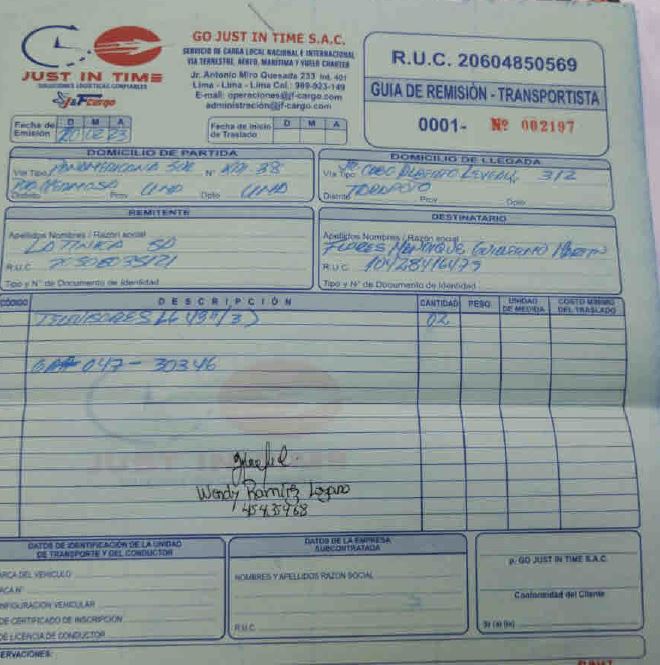 JUST IN TIME
SOLUCIONES LOGISTICAS CONFIABLES
J&F Cargo
GO JUST IN TIME S.A.C.
SERVICIO DE CARGA LOCAL NACIONAL E INTERNACIONAL
VIA TERRESTRE, AEREO, MARITIMA Y VUELO CHARTER
Jr. Antonio Miro Quesada 233 Int. 401
Lima - Lima - Lima Cel.: 989-923-149
E-mail: operaciones@jf-cargo.com
administracion@jf-cargo.com
R.U.C. 20604850569
GUIA DE REMISIÓN - TRANSPORTISTA
0001- Nº 002197
Fecha de Emisión D M A
20 02 23
Fecha de Inicio de Traslado D M A
DOMICILIO DE PARTIDA
Via Tipo PANAMERICANA SUR N° KM 38
Distrito Prov LIMA Dpto LIMA
DOMICILIO DE LLEGADA
Via Tipo ALBERTO LEVEAU 312
Distrito TARAPOTO Prov Dpto
REMITENTE
Apellidos Nombres / Razón social
LA TINKA SA
R.U.C 20506035121
Tipo y N° de Documento de Identidad
DESTINATARIO
Apellidos Nombres / Razón social
FLORES MANRIQUE GUILLERMO MARTIN
R.U.C 10428416479
Tipo y N° de Documento de Identidad
CÓDIGO DESCRIPCIÓN CANTIDAD PESO UNIDAD DE MEDIDA COSTO MINIMO DEL TRASLADO
TELEVISORES LG 43" 02
047 - 30346
Wendy Ramírez Lozano
45435968
DATOS DE IDENTIFICACIÓN DE LA UNIDAD DE TRANSPORTE Y DEL CONDUCTOR
ARCA DEL VEHICULO
ACA N°
NFIGURACION VEHICULAR
DE CERTIFICADO DE INSCRIPCION
DE LICENCIA DE CONDUCTOR
DATOS DE LA EMPRESA SUBCONTRATADA
NOMBRES Y APELLIDOS RAZON SOCIAL
R.U.C.
p. GO JUST IN TIME S.A.C.
Conformidad del Cliente
Sr (a) (ta)
ERVACIONES: